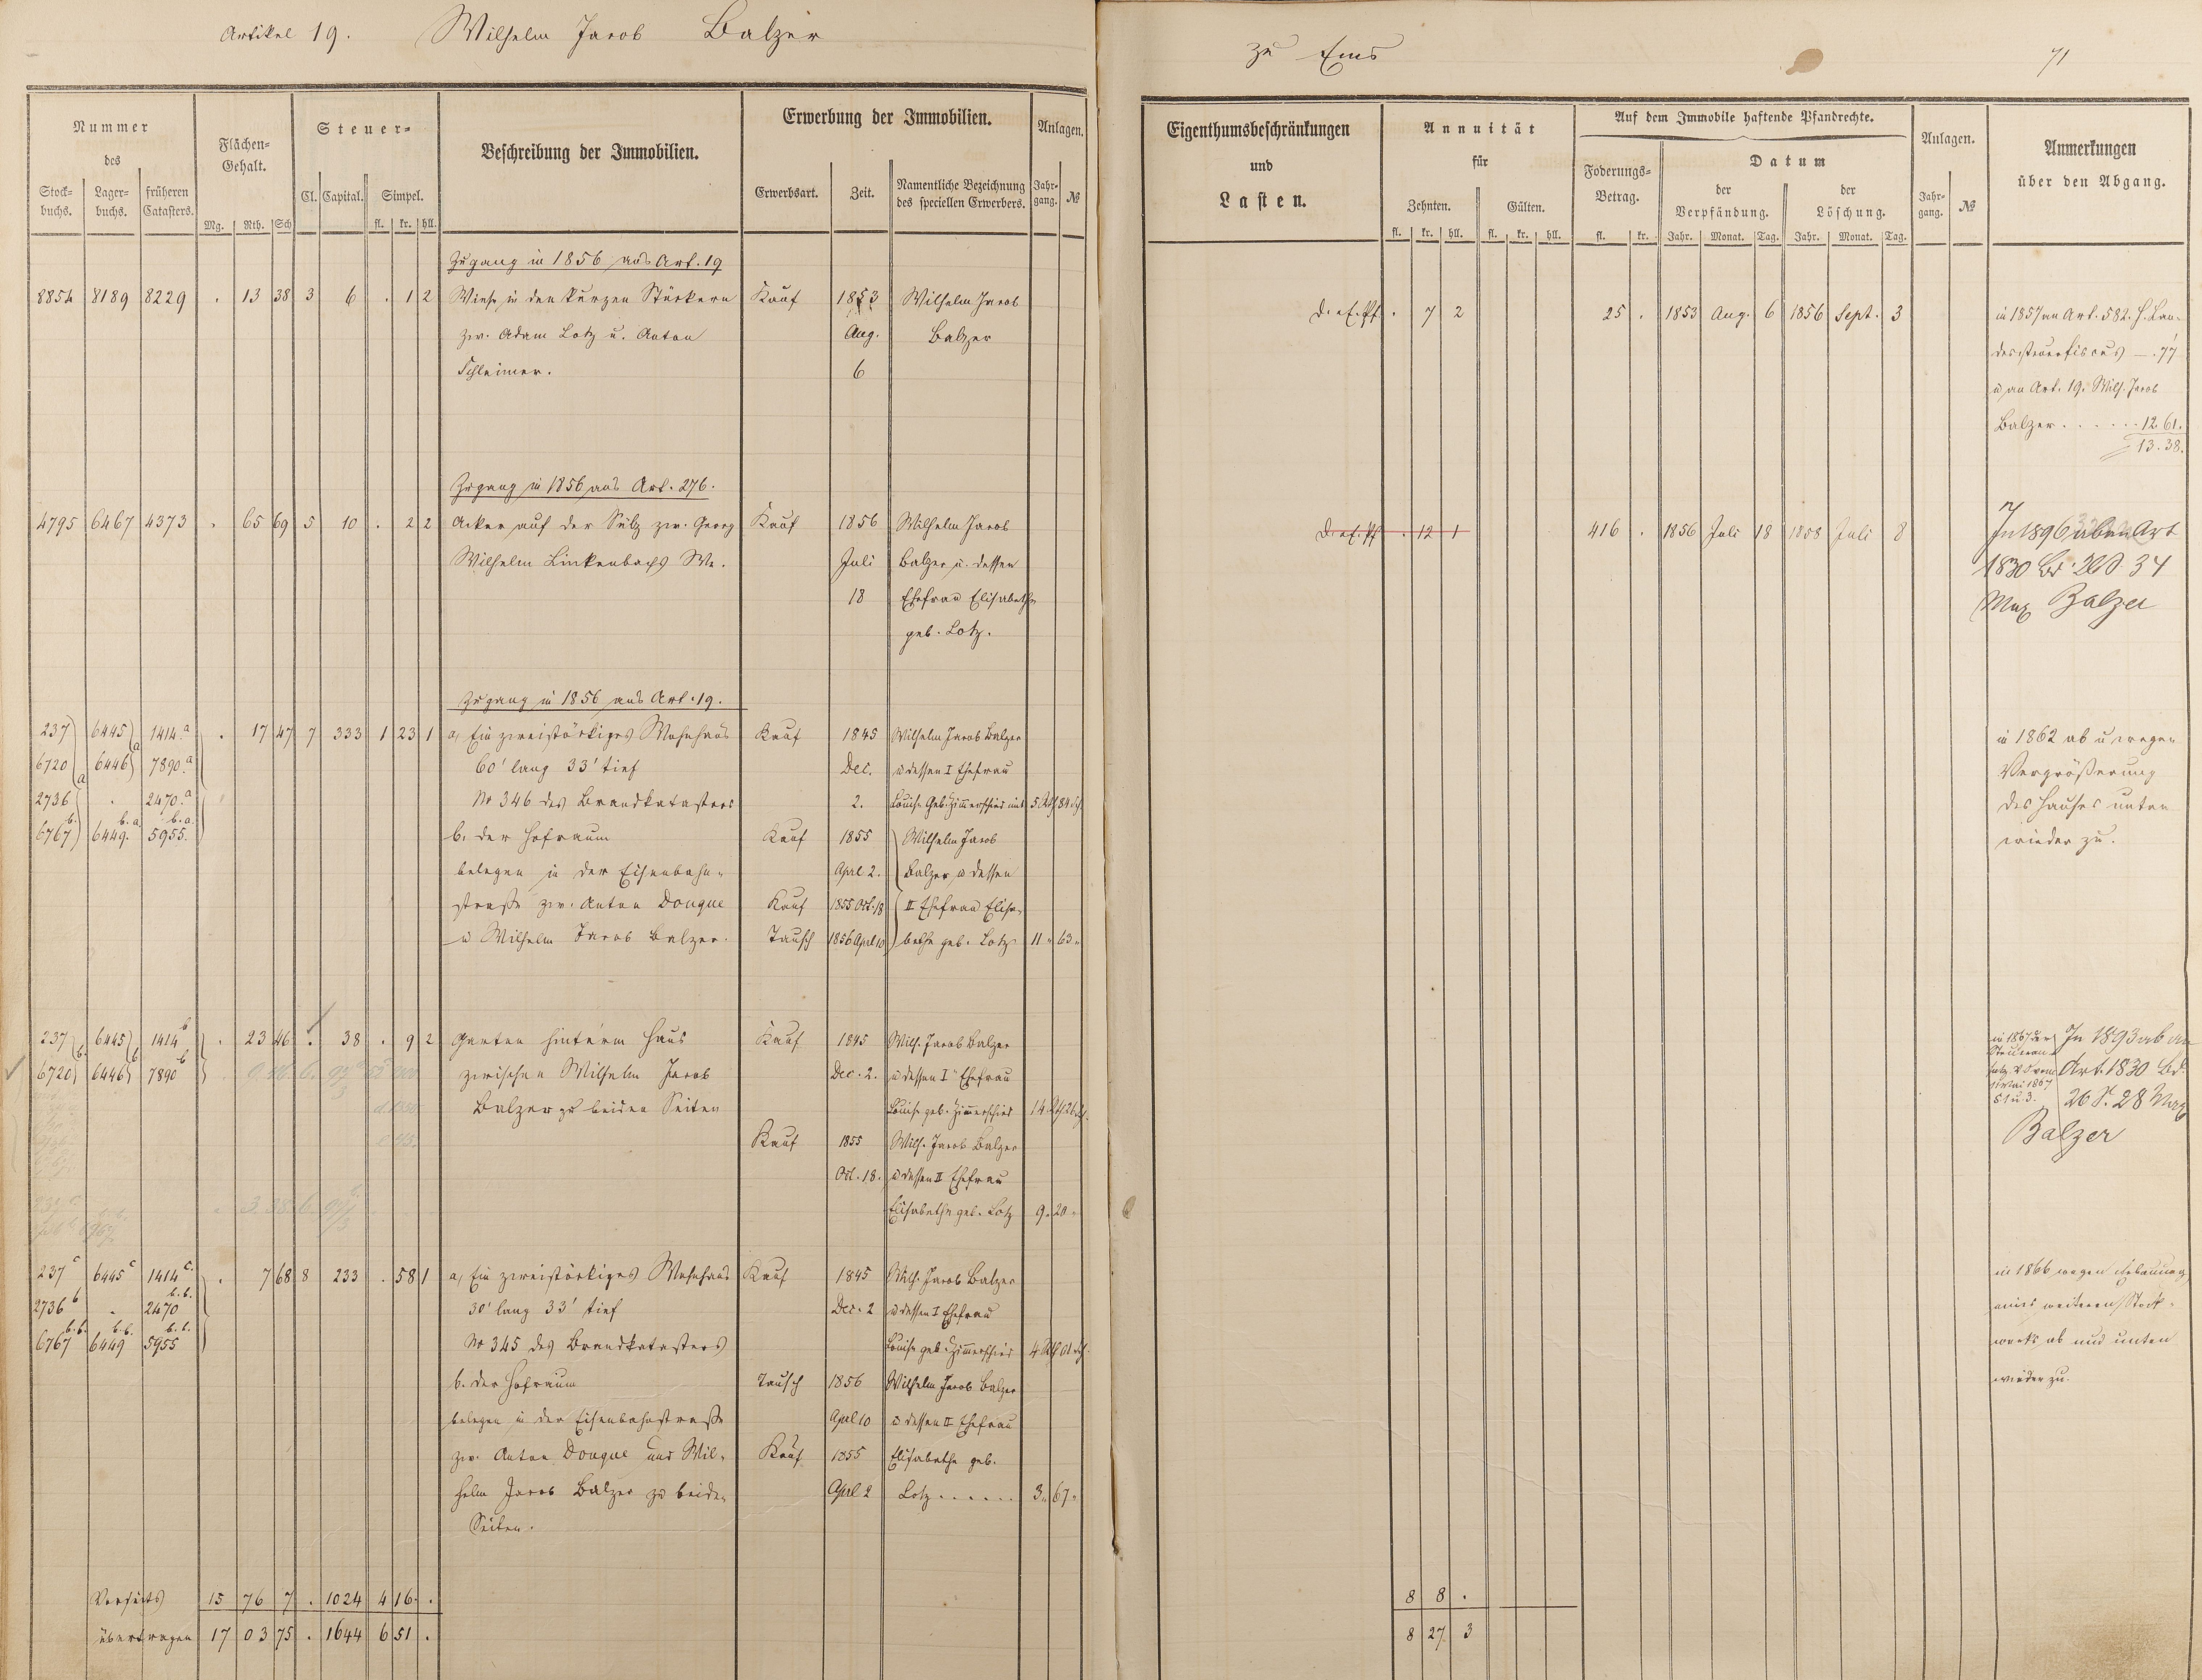 Artikel 19. Wilhelm Jacob Balzer
zu Ems 71
Nummer des
Stockbuchs. Lagerbuchs. früheren Catasters.
Flächen-Gehalt.
Mg. Rth. Sch
Steuer-
Cl. Capital. Simpel.
fl. kr. hll.
Beschreibung der Immobilien.
Erwerbung der Immobilien.
Erwerbsart. Zeit. Namentliche Bezeichnung des speciellen Erwerbers.
Anlagen.
Jahrgang. №
Eigenthumsbeschränkungen
und
Lasten.
Annuität
für
Zehnten. Gülten.
fl. kr. hll. fl. kr. hll.
Auf dem Immobile haftende Pfandrechte.
Foderungs-Betrag.
fl. kr.
Datum
der Verpfändung. der Löschung.
Jahr. Monat. Tag. Jahr. Monat. Tag.
Anlagen.
Jahrgang. №
Anmerkungen
über den Abgang.
Zugang in 1856 aus Art. 19
8854 8189 8229 . 13 38 3 6 . 1 2 Wiese in den kurzen Stücken Kauf 1853 Wilhelm Jacob
zw. Adam Lotz u. Anton Aug. Balzer
Schleimer. 6
. 7 2 25 . 1853 Aug. 6 1856 Sept. 3
in 1857 an Art. 582. H. Lan-
dessteuerfiscus — . 77
u an Art. 19. Wilh. Jacob
Balzer . . . . . . 12 61.
13. 38.
Zugang in 1856 aus Art. 276.
4795 6467 4373 . 65 69 5 10 . 2 2 Acker auf der Sülz zw. Georg Kauf 1856 Wilhelm Jacob
Wilhelm Linkenbachs We. Juli Balzer u. dessen
18 Ehefrau Elisabethe
geb. Lotz.
. 12 1 416 . 1856 Juli 18 1858 Juli 8
In 1896 ab an Art
1830 Bd. 34
Max Balzer
Zugang in 1856 aus Art. 19.
237 6445 1414.a . 17 47 7 333 1 23 1 a, Ein zweistöckiges Wohnhaus Kauf 1845 Wilhelm Jacob Balzer
6720 a 6446 a 7890.a 60' lang 33' tief Dec. u dessen I Ehefrau
2736 . 2470.a No 346 des Brandkatasters 2. Louise Geb. Zimmerschied mit 5 Rth 84 Sch.
6767 b. 6449. b. a 5955. b. a. b. der Hofraum Kauf 1855 Wilhelm Jacob
belegen in der Eisenbahn- Apl 2. Balzer u dessen
strasse zw. Anton Donque Kauf 1855 Oct. 18 II Ehefrau Elisa-
u Wilhelm Jacob Balzer. Tausch 1856 Apl 10 bethe geb. Lotz 11 " 63 "
in 1862 ab u wegen
Vergrößerung
des Hauses unten
wieder zu.
237 6445 1414 b . 23 46 . 38 . 9 2 Garten hinterm Haus Kauf 1845 Wilh. Jacob Balzer
6720 b. 6446 b 7890 b zwischen Wilhelm Jacob Dec. 2. u dessen I Ehefrau
Balzer zu beiden Seiten Louise geb. Zimmerschied 14 Rth 26 Sch.
Kauf 1855 Wilh. Jacob Balzer
Oct. 18. u dessen II Ehefrau
Elisabethe geb. Lotz 9 " 20 "
in 1867 der
1 Mai 1867
In 1893 ab an
Art. 1830 Bd.
26 S. 28 Max
Balzer
237 c 6445 c 1414 c. . 7 68 8 233 . 58 1 a, Ein zweistöckiges Wohnhaus Kauf 1845 Wilh. Jacob Balzer
2736 b . 2470 b. b. 30' lang 33' tief Dec. 2 u dessen I Ehefrau
6767 b. b. 6449 b. b. 5955 b. b. No 345 des Brandkatasters Louise geb. Zimmerschied 4 Rth 01 Sch.
b. der Hofraum Tausch 1856 Wilhelm Jacob Balzer
belegen in der Eisenbahnstrasse Apl 10 u dessen II Ehefrau
zw. Anton Donque und Wil- Kauf 1855 Elisabethe geb.
helm Jacob Balzer zu beiden Apl 2 Lotz . . . . . . 3 " 67 "
Seiten.
in 1866 wegen Erbauung
eines weiteren Stock-
werks ab und unten
wieder zu.
Vorseits 15 76 7 . 1024 4 16 . 8 8 .
übertragen 17 03 75 . 1644 6 51 . 8 27 3